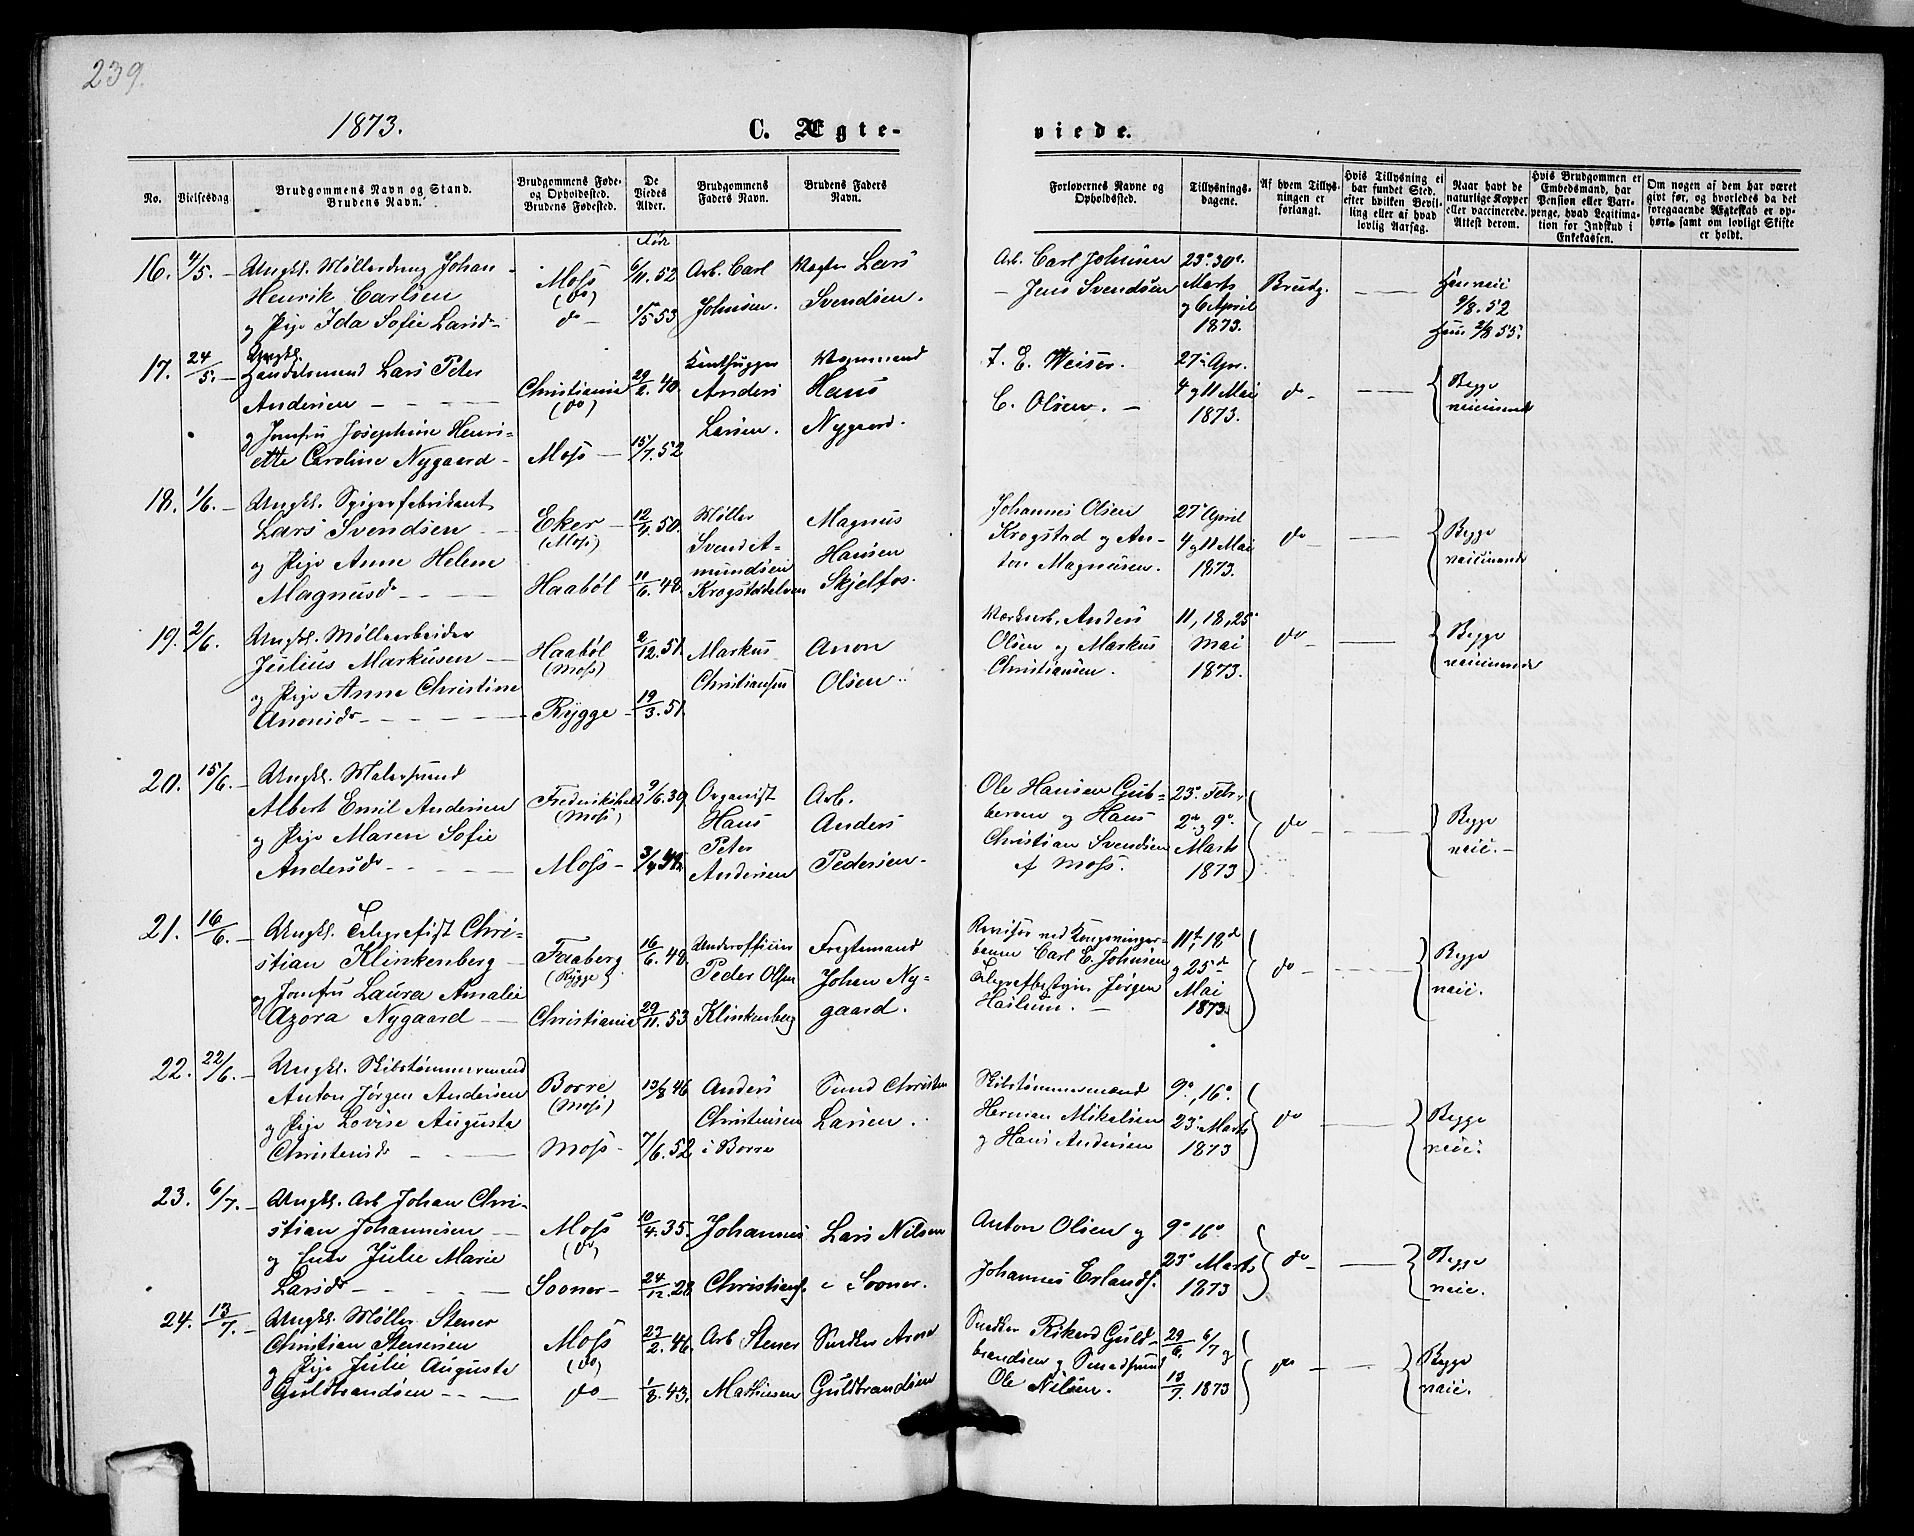 239.
1873.
C. Ægte-
viede.
No.
Vielsesdag.
Brudgommens Navn og Stand.
Brudens Navn.
Brudgommens Føde-
og Opholdssted.
Brudens Fødested.
De
Viedes
Alder.
Brudgommens
Faders Navn.
Brudens Faders
Navn.
Forlovernes Navne og
Opholdssted.
Tillysnings-
dagene.
Af hvem Tillys-
ningen er
forlangt.
Hvis Tillysning ei
har fundet Sted,
efter hvilken Bevil-
ling eller af hvad
lovlig Aarsag.
Naar havt de
naturlige Kopper
eller vaccinerede.
Attest derom.
Hvis Brudgommen er
Embedsmand, har
Pension eller Vart-
penge, hvad Legitima-
tion for Indskud i
Enkekassen.
Om nogen af dem har været
gift før, og hvorledes da det
foregaaende Ægteskab er op-
hørt, samt om lovligt Skifte
er holdt.
16. 4/5. Ungkl. Møllerdreng Johan
Henrik Carlsen
og Pige Ida Sofie Larsdr
Moss
(do)
do
Født
6/11.52
1/5 53
Arb. Carl
Johnsen.
Lars
Svendsen.
Arb. Carl Johnsen
Jens Svendsen
23de 30te
Marts
og 6 April
1873.
Brudg.
9/8. 52
17. 24/5. Ungkl.
Handelsmand Lars Peter
Andersen
og Jomfru Josephine Henri-
ette Caroline Nygaard
Christiania
(do)
Moss
29/2.40.
15/7.52
Anders
Larsen.
Vognmand
Hans
Nygaard.
F. E. Weiser.
C. Olsen.
27de Apr.
4 og 11 Mai
1873.
do
Begge
vaccinerede
18. 1/6. Ungkl. Spigerfabrikant
Lars Svendsen
og Pige Anne Helene
Magnusdr
Eker
(Moss)
Haabøl
12/4.50.
11/6.48.
Møller
Svend A-
mundsen
Krogstadelven
Magnus
Hansen
Skjelfos.
Johannes Olsen
Krogstad og An-
ton Magnusen.
27de April
4 og 11 Mai
1873.
do
Begge
vaccinerede
19. 2/6. Ungkl. Møllearbeider
Julius Markusen
og Pige Anne Christine
Aronsdr
Haabøl
(Moss)
Rygge
2/12.51.
19/3.51.
Markus
Christiansen
Aron
Olsen.
Værksarb. Anders
Olsen og Markus
Christiansen.
11, 18, 25
Mai
1873.
do
Begge
vaccinerede
20. 15/6. Ungkl. Malersvend
Albert Emil Andersen
og Pige Maren Sofie
Andersdr
Frederikshald
(Moss)
Moss
9/6.39
3/4 48.
Organist
Hans
Peter
Andersen
Arb.
Anders
Pedersen
Ole Hansen Gub-
berom og Hans
Christian Svendsen
af Moss.
23de Febr.
2den og 9de
Marts
1873
do
Begge
vacc.
21. 16/6. Ungkl. Telegrafist Chri-
stian Klinkenberg
og Jomfru Laura Amalie
Azora Nygaard
Faaberg
(Rygge)
Christiania
16/6.48.
29/11.53
Underofficier
Peder Olsen
Klinkenberg
Fragtemand
Johan Ny-
gaard.
Revisor ved Kongsvinger-
banen Carl E. Johnsen
Telegrafbestyrer Jørgen
Haslum.
11te, 18de
og 25de
Mai
1873.
do
Begge
vacc.
22. 22/6. Ungkl. Skibstømmermand
Anton Jørgen Andersen
og Pige Lovise Augusta
Christensdr
Borre
(Moss)
Moss
13/8 46
7/6.52
Anders
Christensen
i Borre
Christen
Larsen.
Skibstømmermænd
Herman Mikalsen
og Hans Andersen
9de, 16de.
23de Marts
1873
do
Begge
vacc.
23. 6/7. Ungkl. Arb Johan Chri-
stian Johannesen
og Enke Julie Marie
Larsdr
Moss
(do)
Sooner
10/4.35.
24/12.28
Johannes
Christians.
Lars Nilsen
i Sooner.
Anton Olsen og
Johannes Erlands.
9de 16de
23de Marts
1873
do
Begge
vacc.
24. 13/7. Ungkl. Møller Stener
Christian Stenersen
og Pige Julie Augusta
Guldbrandsen
Moss
(do)
do
23/2.46.
1/8.43.
Arb Stener
Mathiesen
Snedker Arne
Guldbrandsen
Snedker Rikard Guld-
brandsen og Smedsvend
Ole Nilsen.
29/6. 6/7 og
13/7. 1873
do
Begge
vacc.